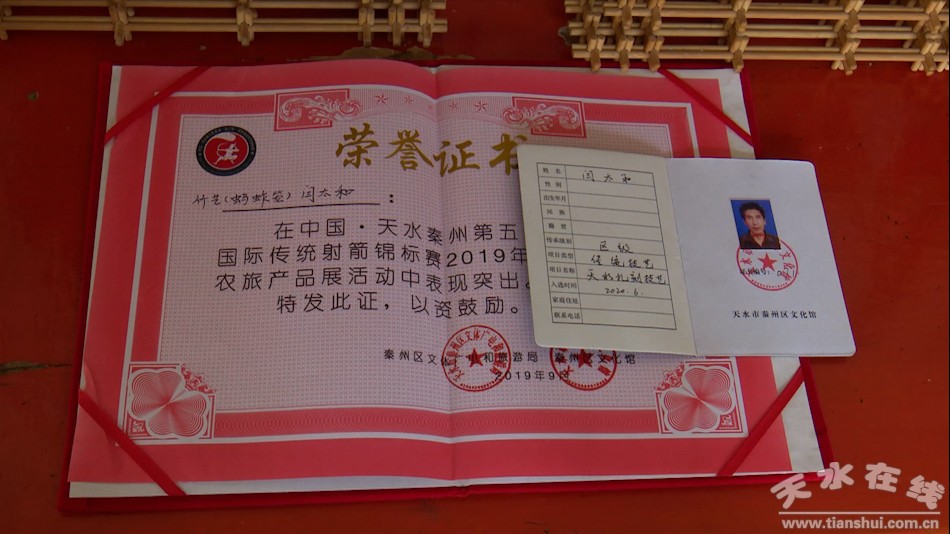 荣誉证书
竹艺(蚂蚱笼)闫太和：
在中国·天水秦州第五
国际传统射箭锦标赛2019年
农旅产品展活动中表现突出
特发此证，以资鼓励。
秦州区文体 和旅游局 秦州区文化馆
2019年9
姓名 闫太和
性别
出生年月
民族
籍贯
传承级别 区级
项目类型 传统技艺
项目名称 天水扎制技艺
入选时间 2020.6.
家庭住址
联系电话
天水市秦州区文化馆
天水在线
www.tianshui.com.cn